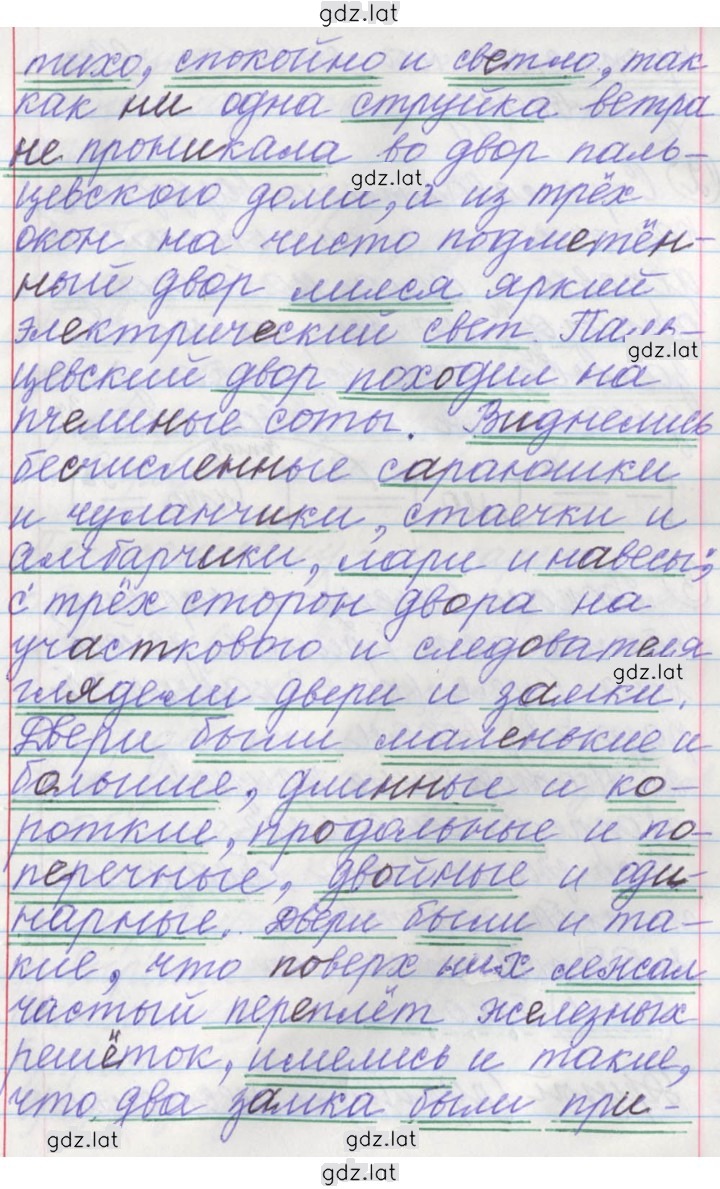 gdz.lat
тихо, спокойно и светло, так
как ни одна струйка ветра
не проникала во двор паль-
gdz.lat
цевского дома, а из трёх
окон на чисто подметён-
ный двор лился яркий
электрический свет. Паль-
gdz.lat
цевский двор походил на
пчелиные соты. Виднелись
бесчисленные сараюшки
и чуланчики, стаечки и
амбарчики, лари и навесы;
с трёх сторон двора на
участкового и следователя
gdz.lat
глядели двери и замки.
Двери были маленькие и
большие, длинные и ко-
роткие, продольные и по-
перечные, двойные и оди-
нарные. Двери были и та-
кие, что поверх них лежал
частый переплёт железных
решёток, имелись и такие,
что два замка были при-
gdz.lat gdz.lat
gdz.lat